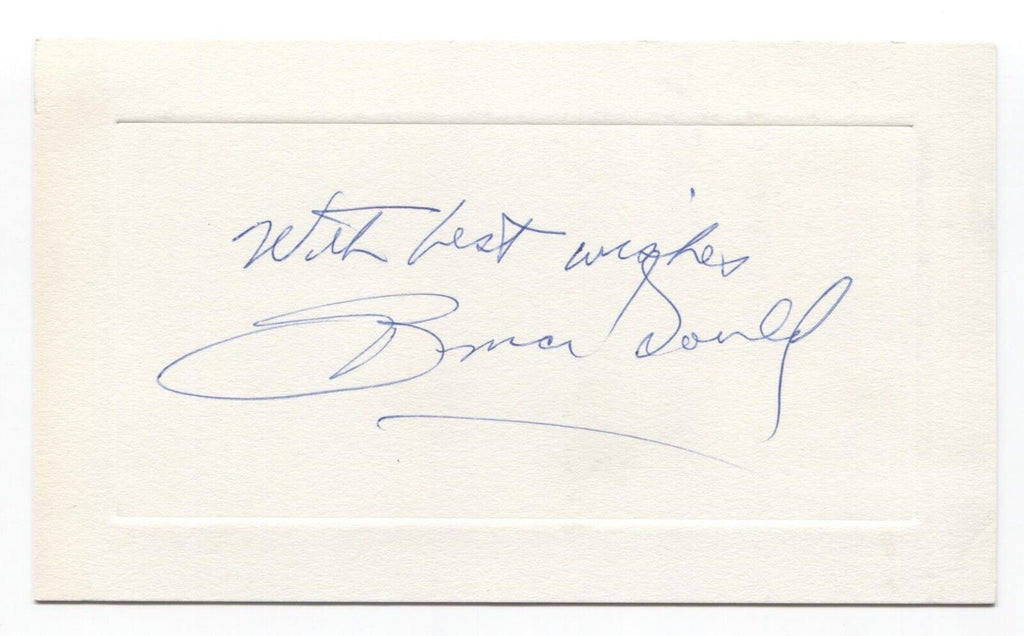 With best wishes
Bruce Gould